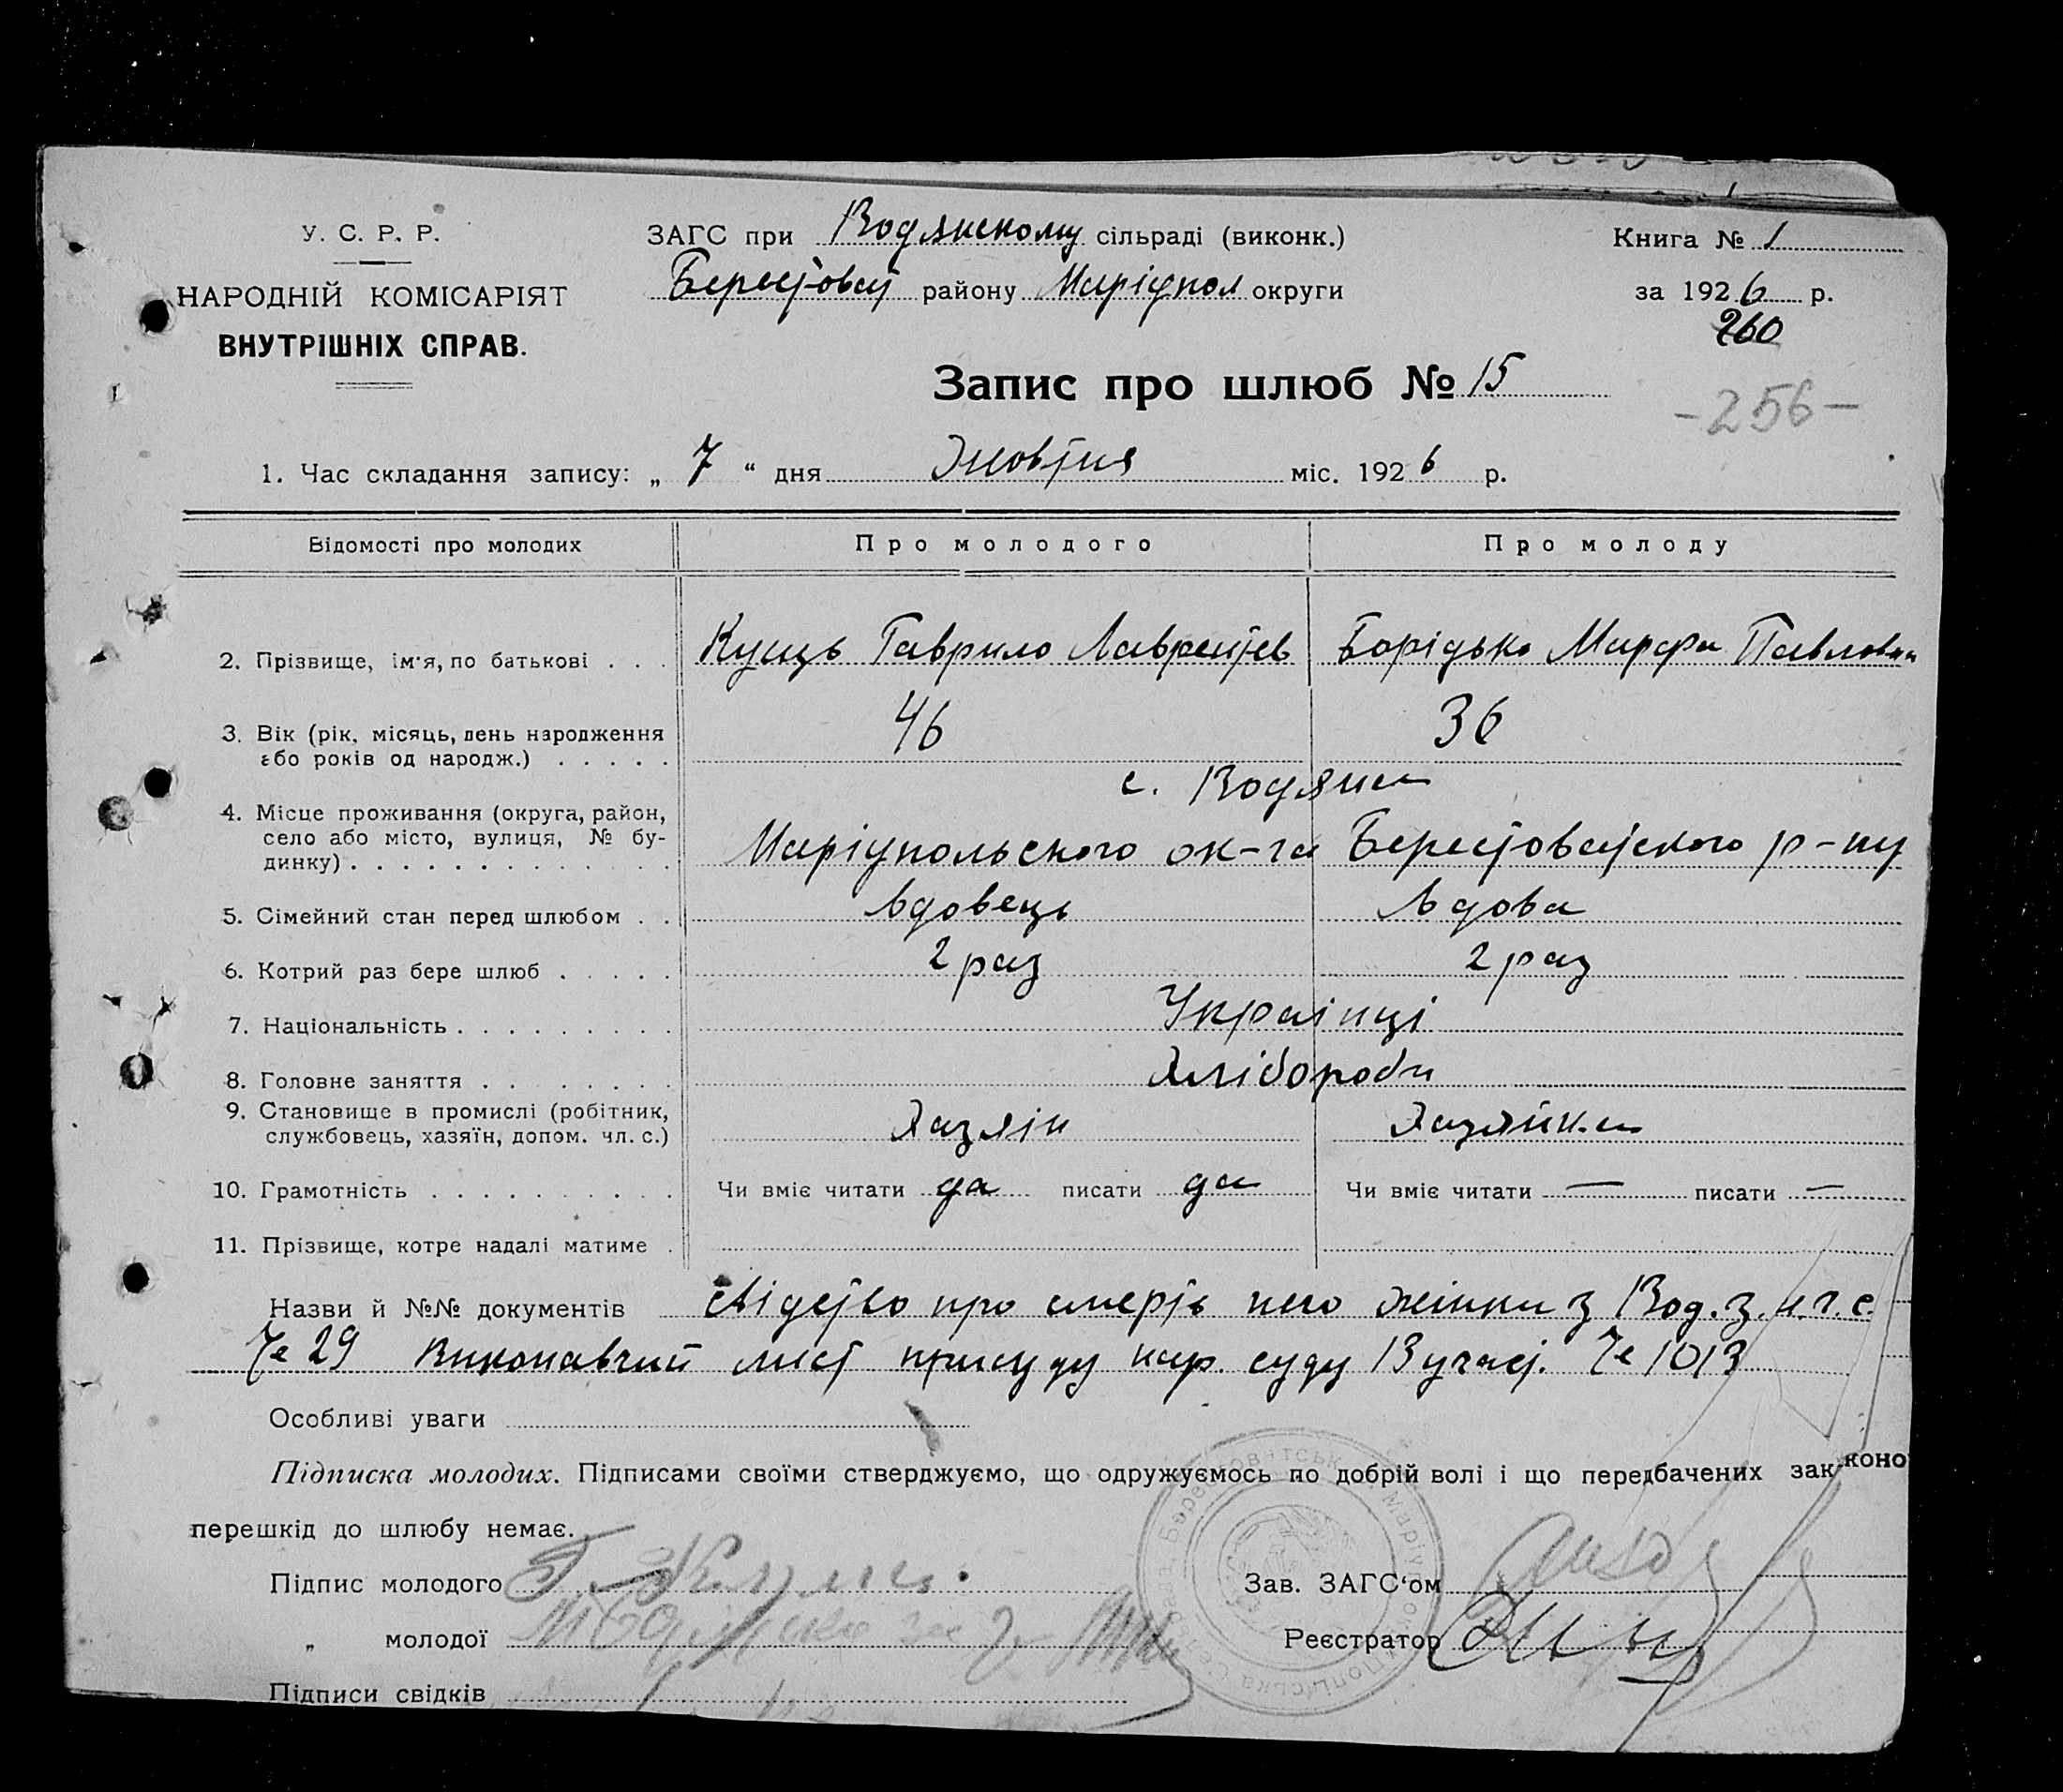 У. С. Р. Р.
НАРОДНІЙ КОМІСАРІЯТ
ВНУТРІШНІХ СПРАВ.
ЗАГС при Водянскому сільраді (виконк.)
Берестоват району Маріупол округи
Книга № 1
за 1926 р.
260
Запис про шлюб № 15
-256-
1. Час складання запису: „ 7 “ дня Жовтня міс. 1926 р.
Відомості про молодих Про молодого Про молоду
2. Прізвище, ім'я, по батькові . . . Куць Гаврило Лаврентєв Борідько Марфа Павловн
3. Вік (рік, місяць, день народження 46 36
або років од народж.) . . . . .
с. Водяни
4. Місце проживання (округа, район,
село або місто, вулиця, № бу-
динку) . . . . . . . . . . . . Маріупольского ок-га Берестоватского р-ну
5. Сімейний стан перед шлюбом . . Вдовець Вдова
6. Котрий раз бере шлюб . . . . . 2 раз 2 раз
7. Національність . . . . . . . . . Украінці
8. Головне заняття . . . . . . . . Хлібороби
9. Становище в промислі (робітник,
службовець, хазяїн, допом. чл. с.) Хазяін Хазяйка
10. Грамотність . . . . . . . . . . Чи вміє читати да писати да Чи вміє читати — писати —
11. Прізвище, котре надалі матиме .
Назви й №№ документів свідетво про смерть него жінки з Вод.
№ 29 Виконавчий лист присуду нар. суду 13 участ. № 1013
Особливі уваги
Підписка молодих. Підписами своїми стверджуємо, що одружуємось по добрій волі і що передбачених зак коно
перешкід до шлюбу немає.
Підпис молодого
„ молодої
Підписи свідків
Зав. ЗАГС'ом
Реєстратор